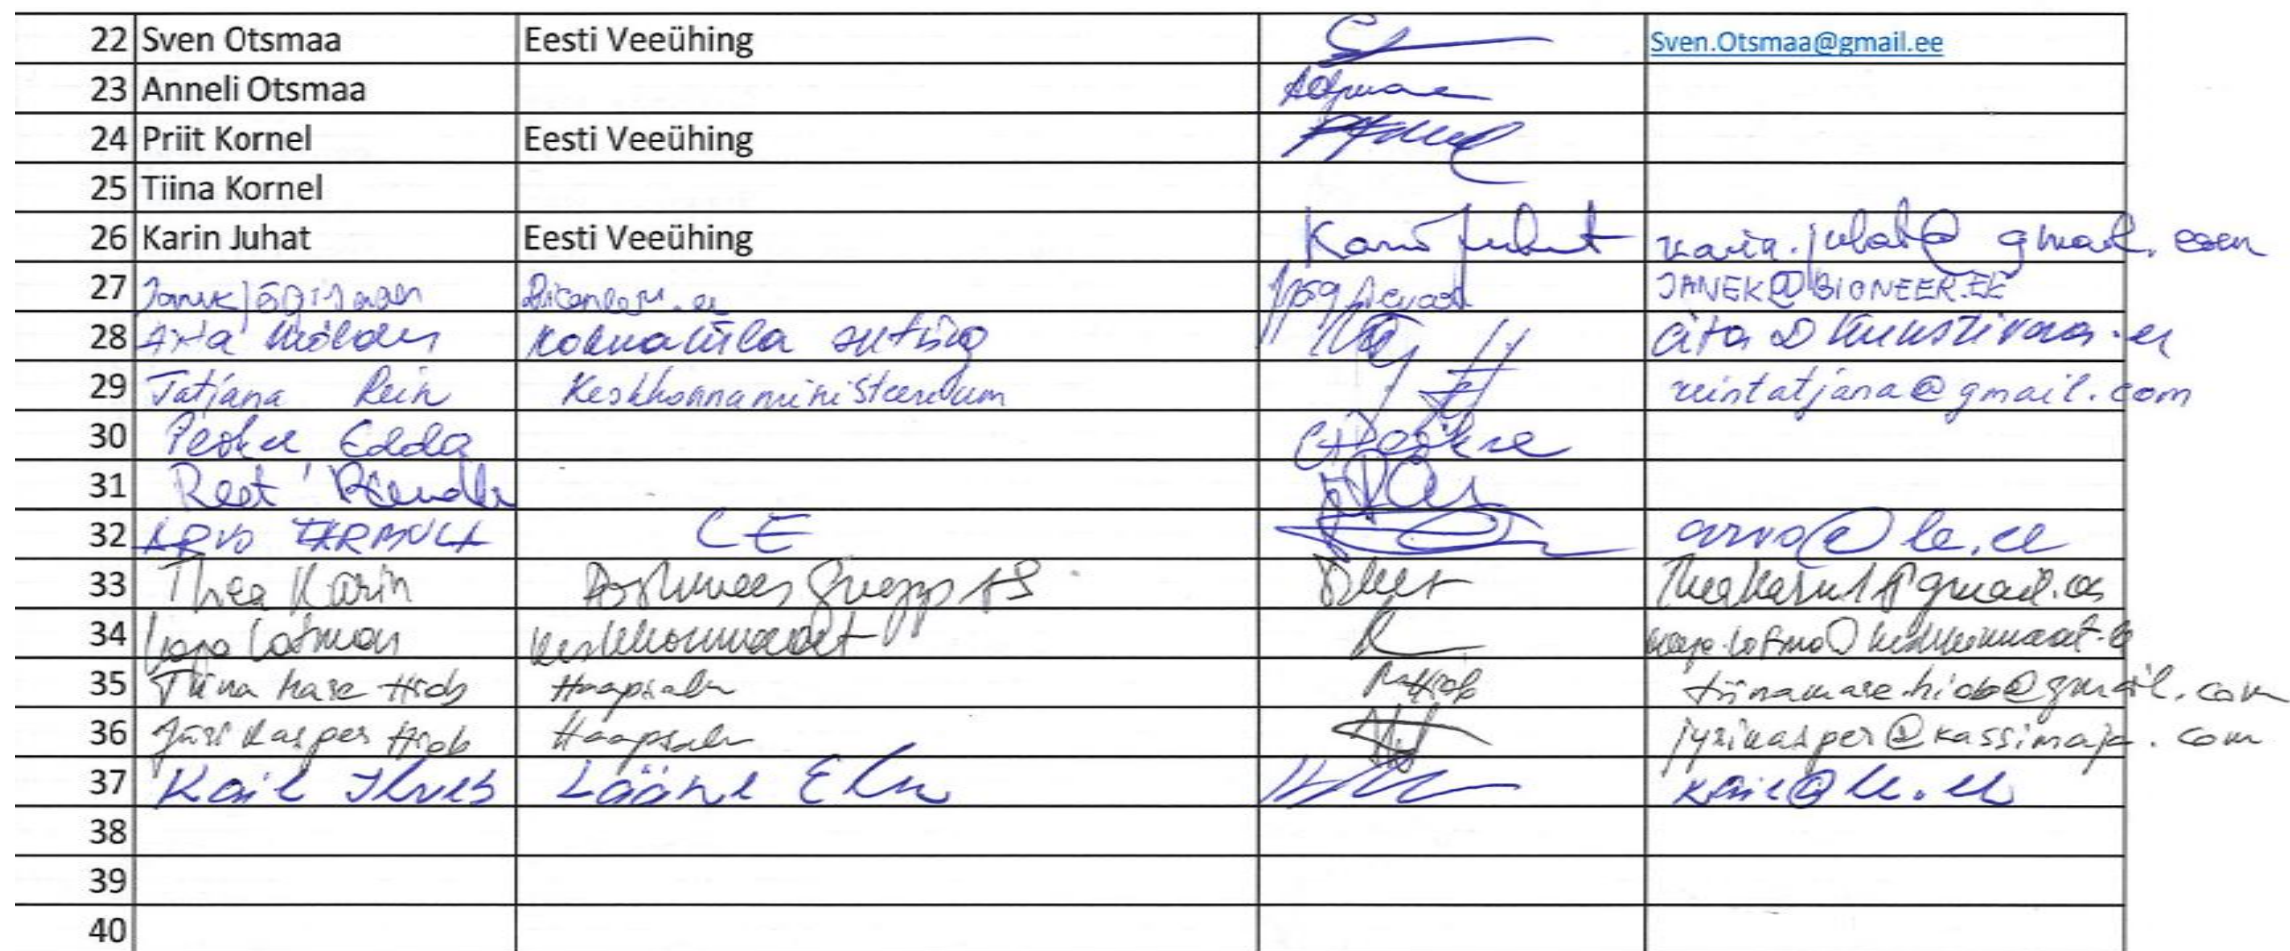 22 Sven Otsmaa Eesti Veeühing Sven.Otsmaa@gmail.ee
23 Anneli Otsmaa
24 Priit Kornel Eesti Veeühing
25 Tiina Kornel
26 Karin Juhat Eesti Veeühing Karin Juhat karin.juhat@gmail.com
27 Janek Jõgisaar Bioneer.ee JANEK@BIONEER.EE
28 Aita Kolmaküla
29 Tatjana Rein Keskkonnaministeerium reintatjana@gmail.com
30 Edda
31 Reet
32 ARVO TARMULA LE arvo@le.ee
33 Thea Karin Postimees Grupp AS
34 Kaja Lotman Keskkonnaamet
35 Tiina Mare Hiob Haapsalu tiinamare.hiob@gmail.com
36 Jüri Kasper Hiob Haapsalu jyrikasper@kassimaja.com
37 Kaie Ilves Lääne Elu kaie@le.ee
38
39
40